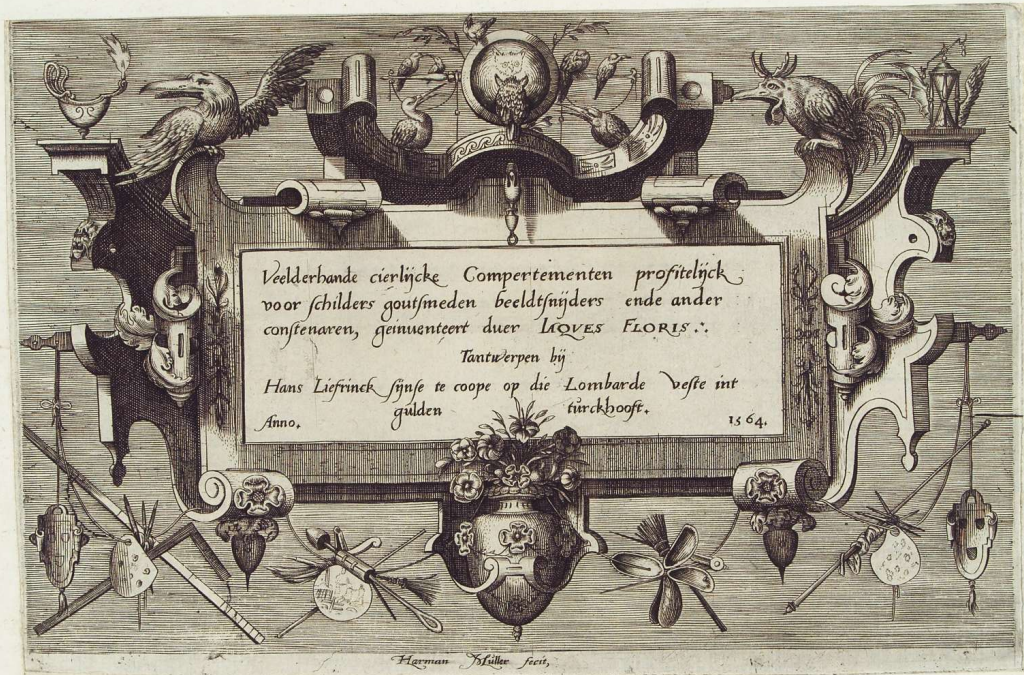 Veelderhande cierlijcke Compertementen profitelijck
voor schilders goutsmeden beeldtsnijders ende ander
constenaren, geinuenteert duer IAQVES FLORIS∴
Tantwerpen bij
Hans Liefrinck sijnse te coope op die Lombarde veste int
gulden turckhooft.
Anno. 1564.
Harman Müller fecit,